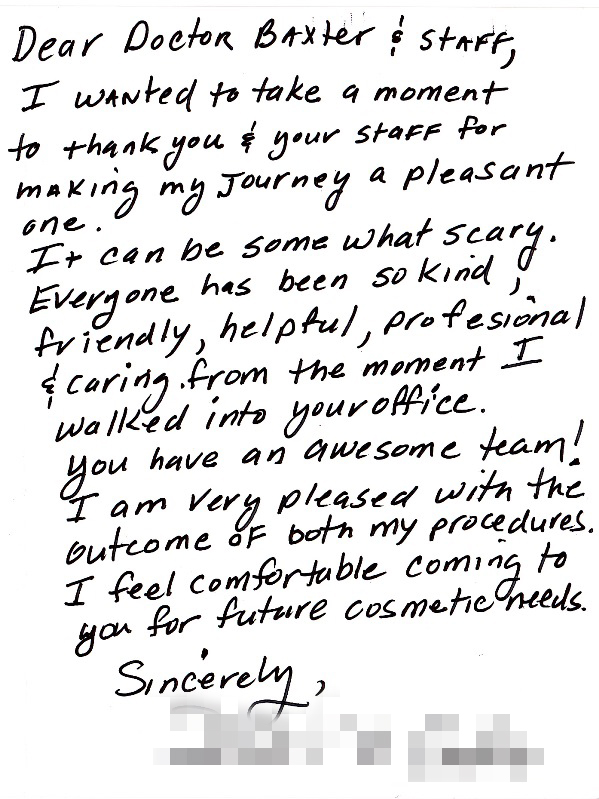 Dear Doctor Baxter & staff,
I wanted to take a moment
to thank you & your staff for
making my Journey a pleasant
one.
It can be some what scary.
Everyone has been so kind,
friendly, helpful, profesional
& caring from the moment I
walked into your office.
You have an awesome team!
I am very pleased with the
outcome of both my procedures.
I feel comfortable coming to
you for future cosmetic needs.
Sincerely,